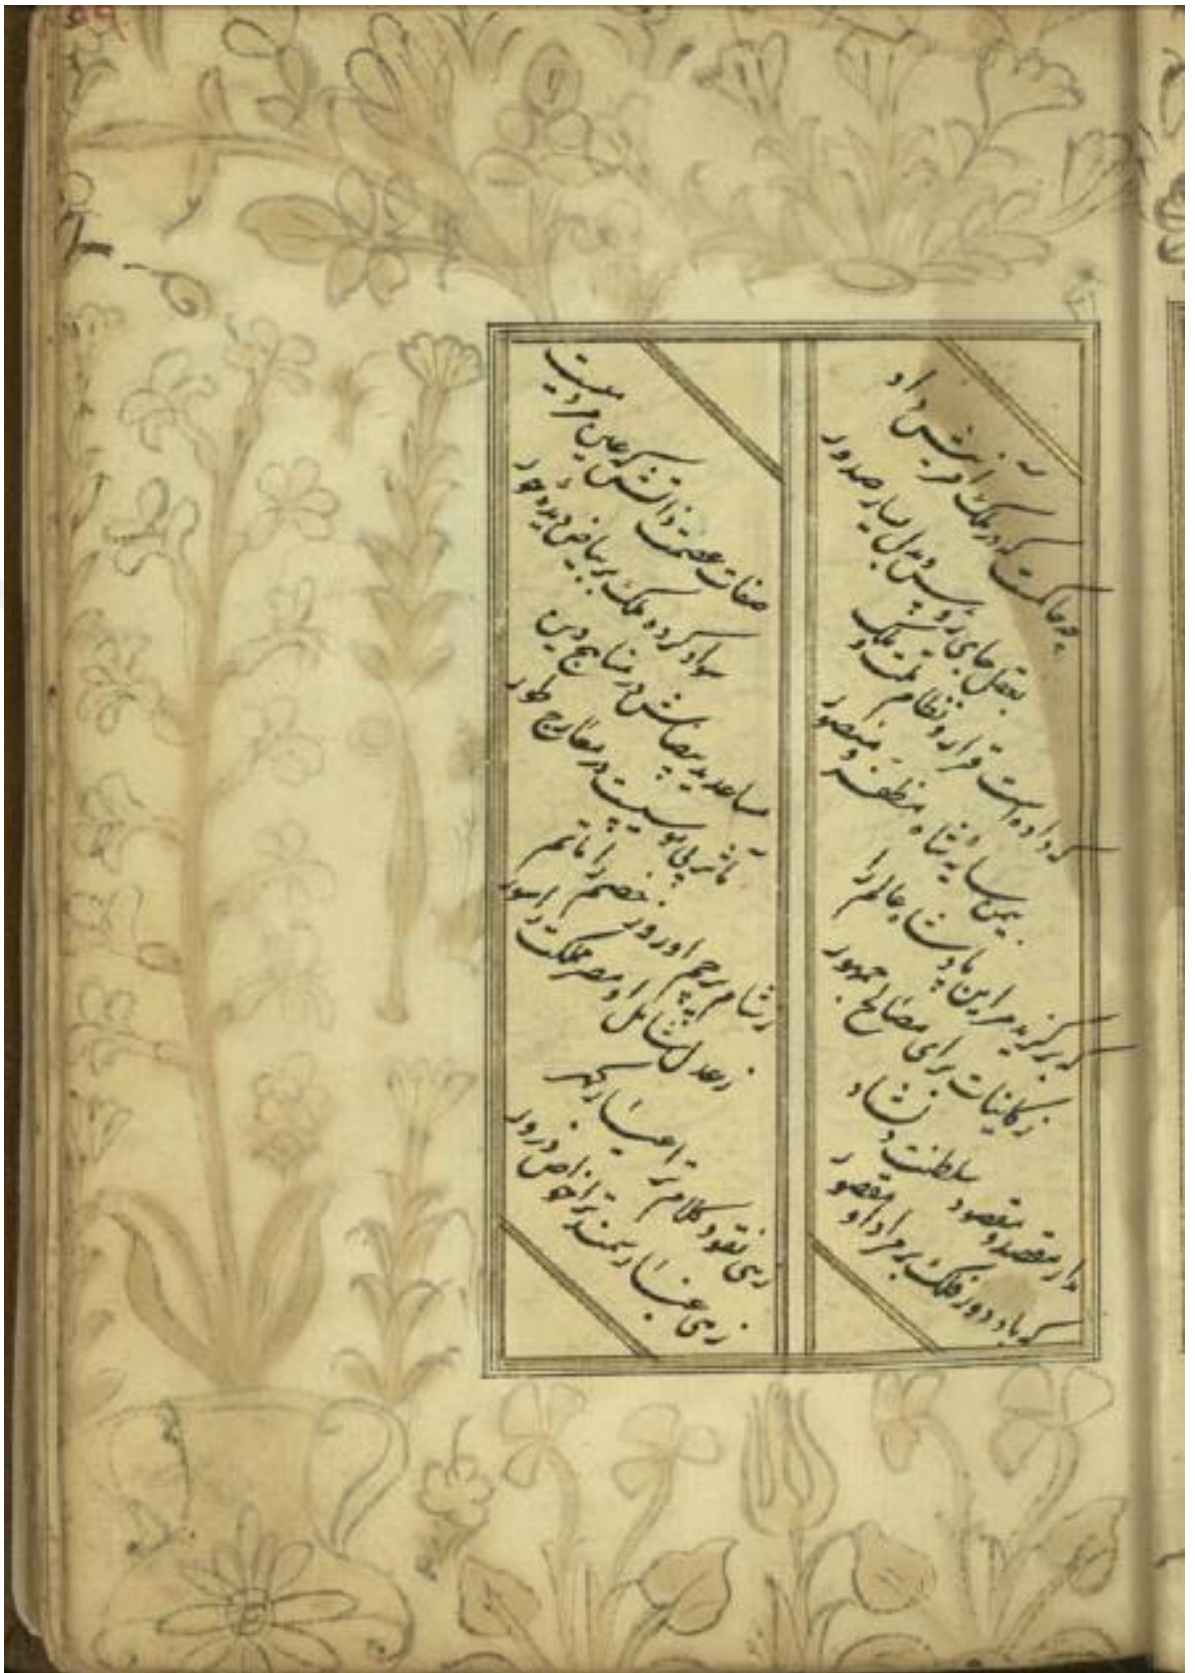 چه حاکمست که در ملک آفرینش داد
بعقل جای رؤس و بدل یسار صدور
که داده است قرار و نظام تخت و ملک
بیمن سایهٔ شاه مظفر و منصور
که برگزید مر این پادشاه عالم را
ز کاینات برای مصالح جمهور
مدار مقصد و مقصود سلطنت دلشاد
که باد دور فلک بر مراد او مقصور
صفات عصمت ذاتش که عین مردمیست
سواد کرده ملک بر بیاض دیدهٔ حور
مساعد ید بیضاش در مناهج دین
مآثر پی موسیست در معارج طور
ز شام پرچم او روز خصم را ماتم
ز عدل شامل او مصر مملکت را سور
زهی نقود کلام ترا عیار گهر
زهی غبار سمند ترا خواص ذرور